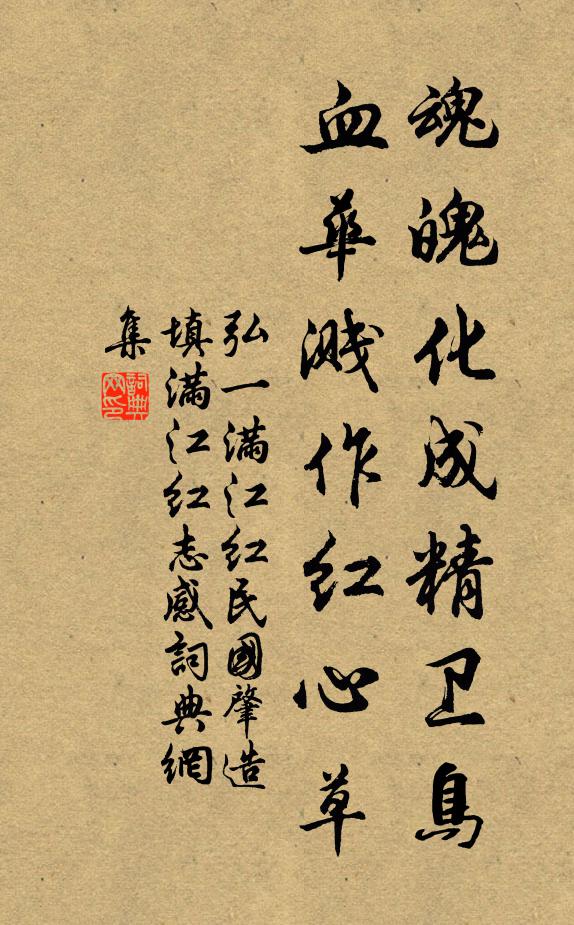 魂魄化成精卫鳥
血華溅作红心草
弘一满江红民國肇造
填满江红志感詞典網
集
詞典